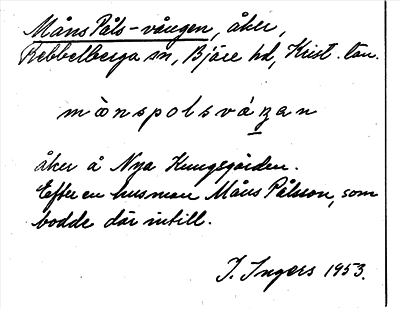 Måns Påls-vången, åker,
Rebbelberga sn, Bjäre hd, Krist. län.
månspolsváŋan
åker å Nya Kungsgården.
Efter en husman Måns Pålsson, som
bodde där intill.
I. Ingers 1953.